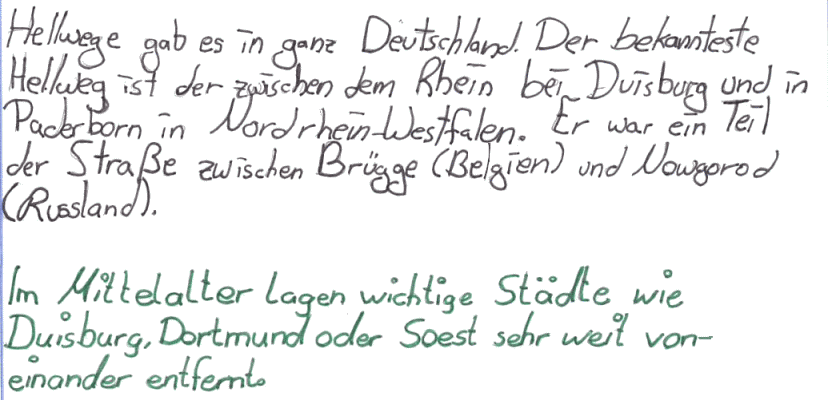 Hellwege gab es in ganz Deutschland. Der bekannteste
Hellweg ist der zwischen dem Rhein bei Duisburg und in
Paderborn in Nordrhein-Westfalen. Er war ein Teil
der Straße zwischen Brügge (Belgien) und Nowgorod
(Russland).
Im Mittelalter lagen wichtige Städte wie
Duisburg, Dortmund oder Soest sehr weit von-
einander entfernt.